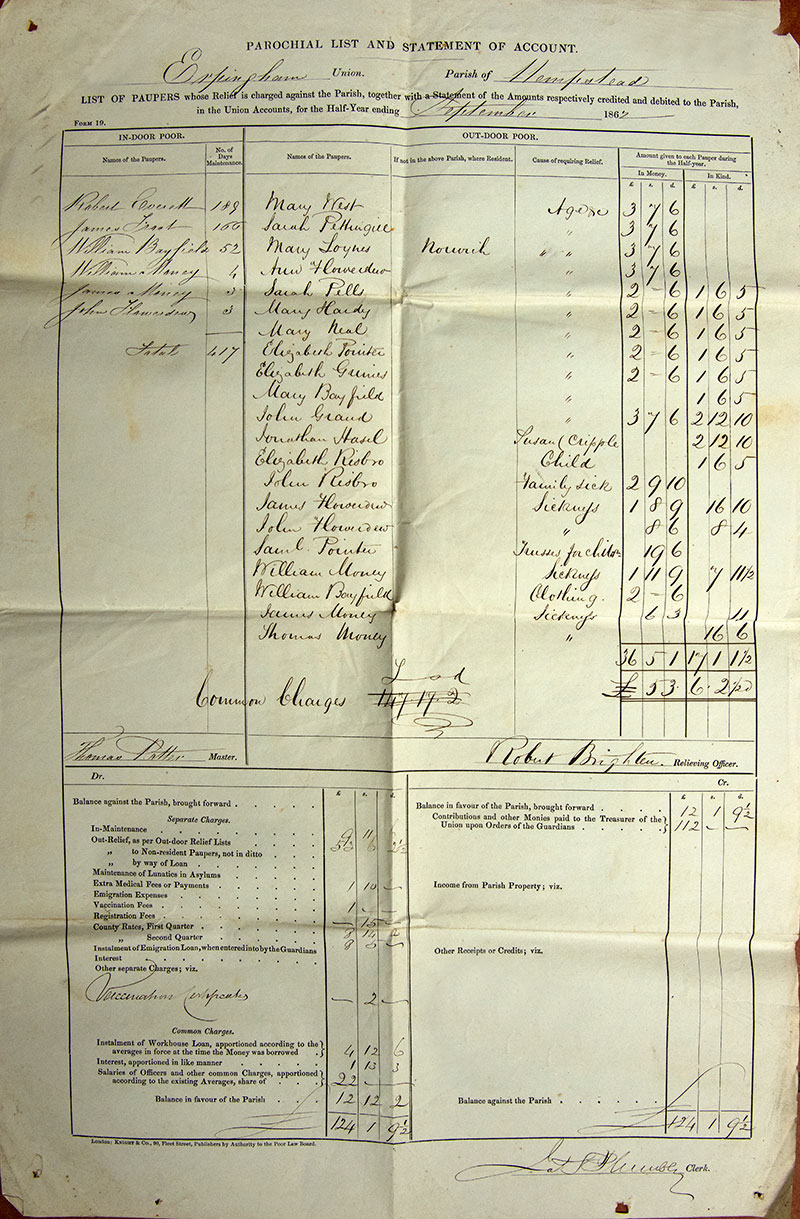 PAROCHIAL LIST AND STATEMENT OF ACCOUNT.
Erpingham Union. Parish of Hempstead
LIST OF PAUPERS whose Relief is charged against the Parish, together with a Statement of the Amounts respectively credited and debited to the Parish,
in the Union Accounts, for the Half-Year ending September 1862
FORM 19.
IN-DOOR POOR. OUT-DOOR POOR.
Names of the Paupers. No. of Days Maintenance. Names of the Paupers. If not in the above Parish, where Resident. Cause of requiring Relief. Amount given to each Pauper during the Half-year.
In Money. In Kind.
£ s. d. £ s. d.
Robert Everett 189 Mary West Age &c 3 7 6
James Frost 166 Sarah Pettingill " 3 7 6
William Bayfield 52 Mary Loynes Norwich " " 3 7 6
William Money 4 Ann Howerdew " 3 7 6
James Money 3 Sarah Pells " 2 - 6 1 6 5
John Howerdew 3 Mary Hardy " 2 - 6 1 6 5
Mary Neal " 2 - 6 1 6 5
Total 417 Elizabeth Pointer " 2 - 6 1 6 5
Elizabeth Grimes " 2 - 6 1 6 5
Mary Bayfield " 1 6 5
John Grand " 3 7 6 2 12 10
Jonathan Hasel Susan Cripple 2 12 10
Elizabeth Risbro Child 1 6 5
John Risbro Family sick 2 9 10
James Howerdew Sickness 1 8 9 16 10
John Howerdew " 8 6 8 4
Saml. Pointer Trusses for 19 6
William Money Sickness 1 11 9 7 11½
William Bayfield Clothing. 2 - 6
James Money Sickness 6 3
Thomas Money " 16 6
36 5 1 17 1 1½
£ s d
Common Charges 147. 17. 2
£ 53. 6. 2½
Thomas Potter Master. Robert Brighten. Relieving Officer.
Dr. Cr.
£ s. d. £ s. d.
Balance against the Parish, brought forward
Balance in favour of the Parish, brought forward 12 1 9½
Separate Charges.
Contributions and other Monies paid to the Treasurer of the Union upon Orders of the Guardians 112 — —
In-Maintenance 9 11
Out-Relief, as per Out-door Relief Lists 53 6 2½
" to Non-resident Paupers, not in ditto
" by way of Loan
Maintenance of Lunatics in Asylums
Extra Medical Fees or Payments 1 10 —
Income from Parish Property; viz.
Emigration Expenses
Vaccination Fees 1 — —
Registration Fees — 15 —
County Rates, First Quarter
" Second Quarter
Instalment of Emigration Loan, when entered into by the Guardians
Other Receipts or Credits; viz.
Interest
Other separate Charges; viz.
Vaccination Certificates — 2 —
Common Charges.
Instalment of Workhouse Loan, apportioned according to the averages in force at the time the Money was borrowed 4 12 6
Interest, apportioned in like manner 1 13 3
Salaries of Officers and other common Charges, apportioned according to the existing Averages, share of 22 — —
Balance in favour of the Parish 12 12 2
Balance against the Parish
124 1 9½ 124 1 9½
London: KNIGHT & Co., 90, Fleet Street, Publishers by Authority to the Poor Law Board.
Clerk.